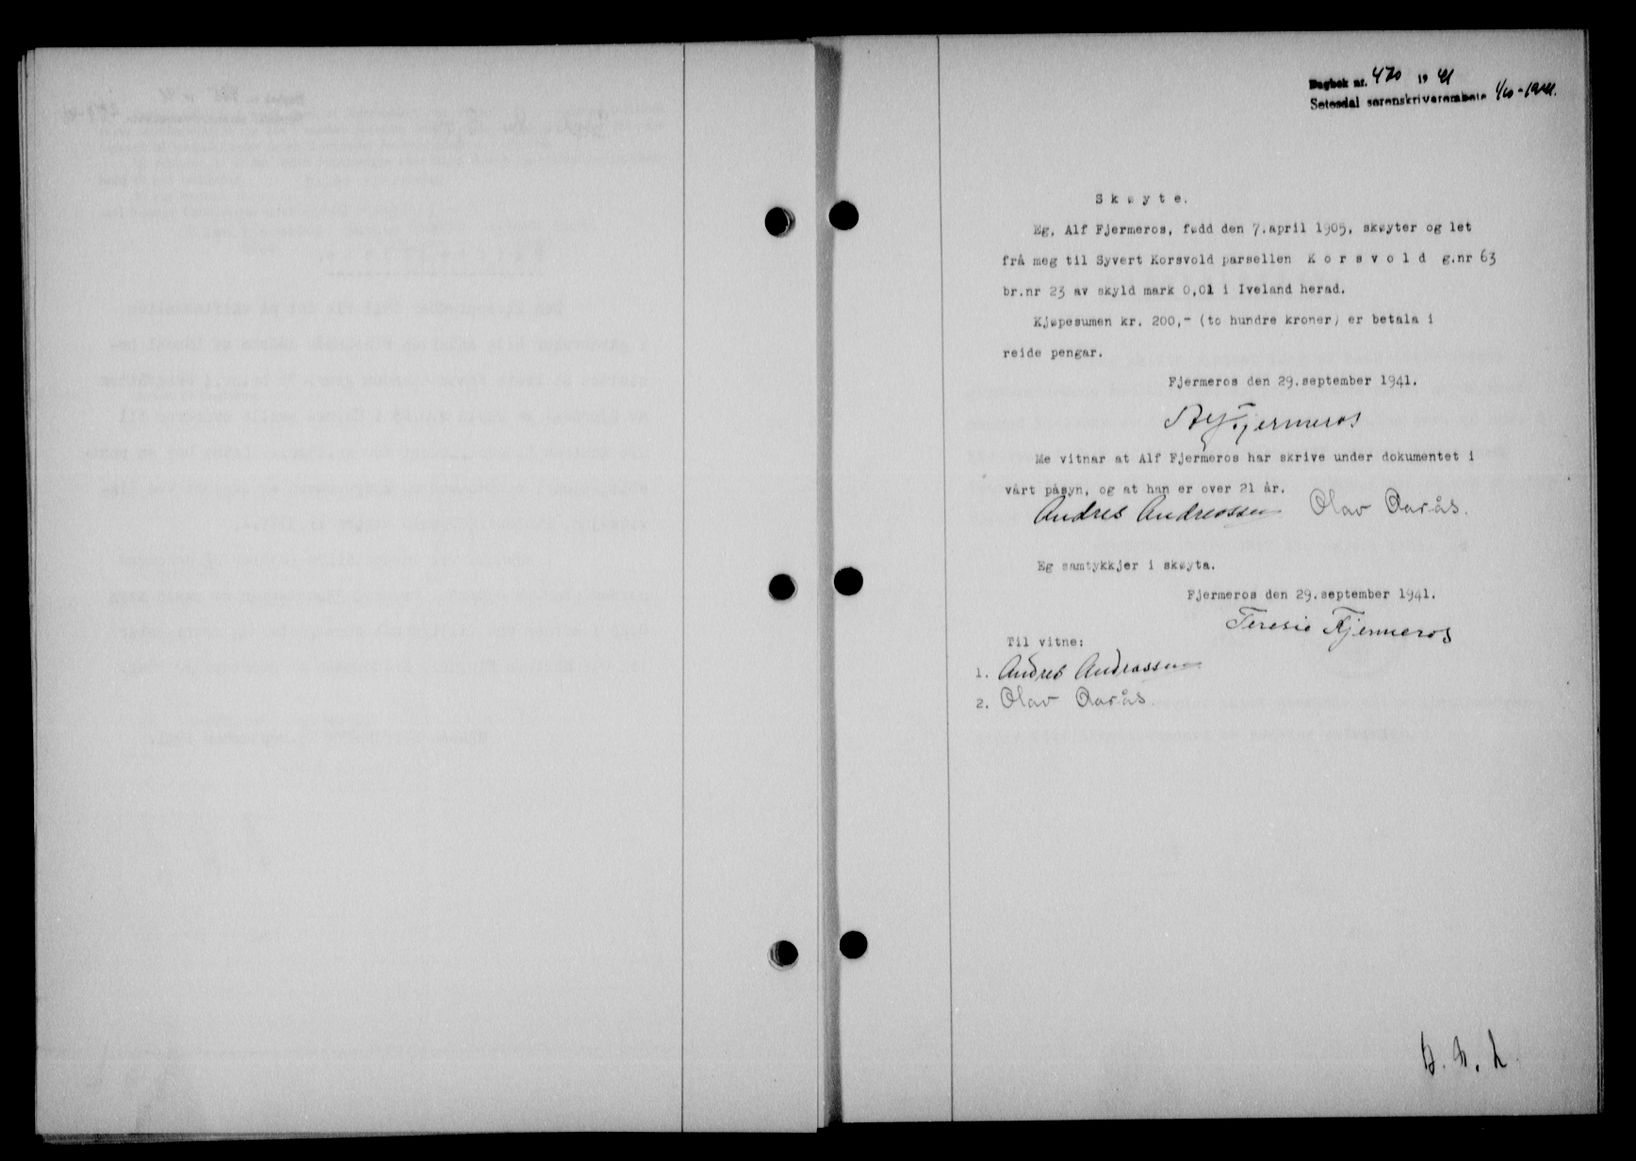 Dagbok nr. 470 19 41
Setesdal sorenskriverembete 1/10-1941.
Skøyte.
Eg, Alf Fjermeros, fødd den 7.april 1905, skøyter og let
frå meg til Syvert Korsvold parsellen Korsvold g.nr 63
br.nr 23 av skyld mark 0,01 i Iveland herad.
Kjøpesumen kr. 200,- (to hundre kroner) er betala i
reide pengar.
Fjermeros den 29.september 1941.
Alf Fjermeros
Me vitnar at Alf Fjermeros har skrive under dokumentet i
vårt påsyn, og at han er over 21 år.
Andres Andreassen Olav Aarås.
Eg samtykkjer i skøyta.
Fjermeros den 29.september 1941.
Teresie Fjermeros
Til vitne:
1. Andres Andreassen
2. Olav Aarås.